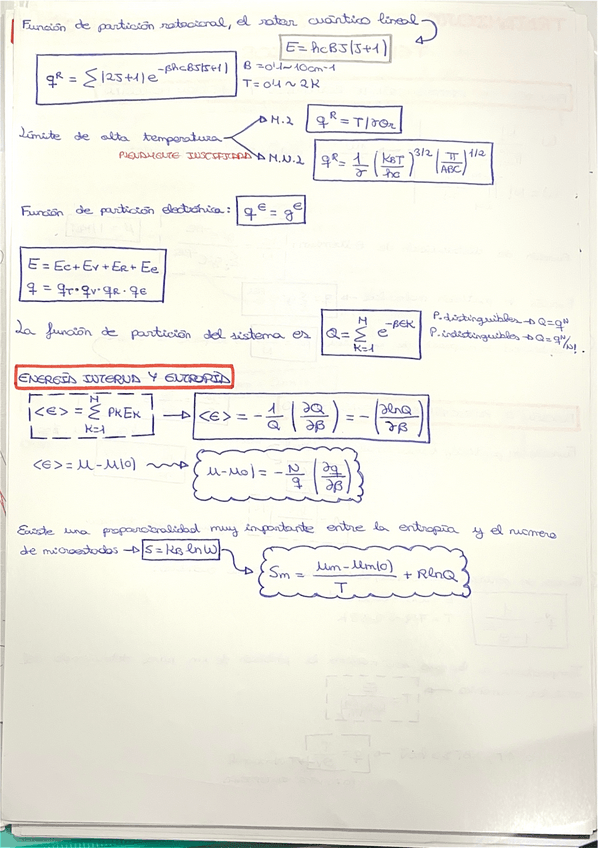 Función de partición rotacional, el rotor cuántico lineal
E = hcBJ(J+1)
q^R = ∑(2J+1)e^{-βhcBJ(J+1)}
B = 0'1 ~ 10cm⁻¹
T = 0'1 ~ 2K
Límite de alta temperatura
M.L q^R = T/σθr
M.N.L q^R = 1/σ (KBT/hc)^{3/2} (π/ABC)^{1/2}
Función de partición electrónica: q^E = g^E
E = Ec + Ev + ER + Ee
q = qT · qV · qR · qE
La función de partición del sistema es Q = ∑_{K=1}^{N} e^{-βEK}
P. distinguibles → Q = q^N
P. indistinguibles → Q = q^N/N!
ENERGÍA INTERNA Y ENTROPÍA
<ε> = ∑_{K=1}^{N} PKEK → <ε> = -1/Q (∂Q/∂β) = -(∂lnQ/∂β)
<ε> = μ - μ(0) → μ-μ0) = -N/q (∂q/∂β)
Existe una proporcionalidad muy importante entre la entropía y el número
de microestados → S = KB lnW
Sm = μm - μm(0)/T + RlnQ